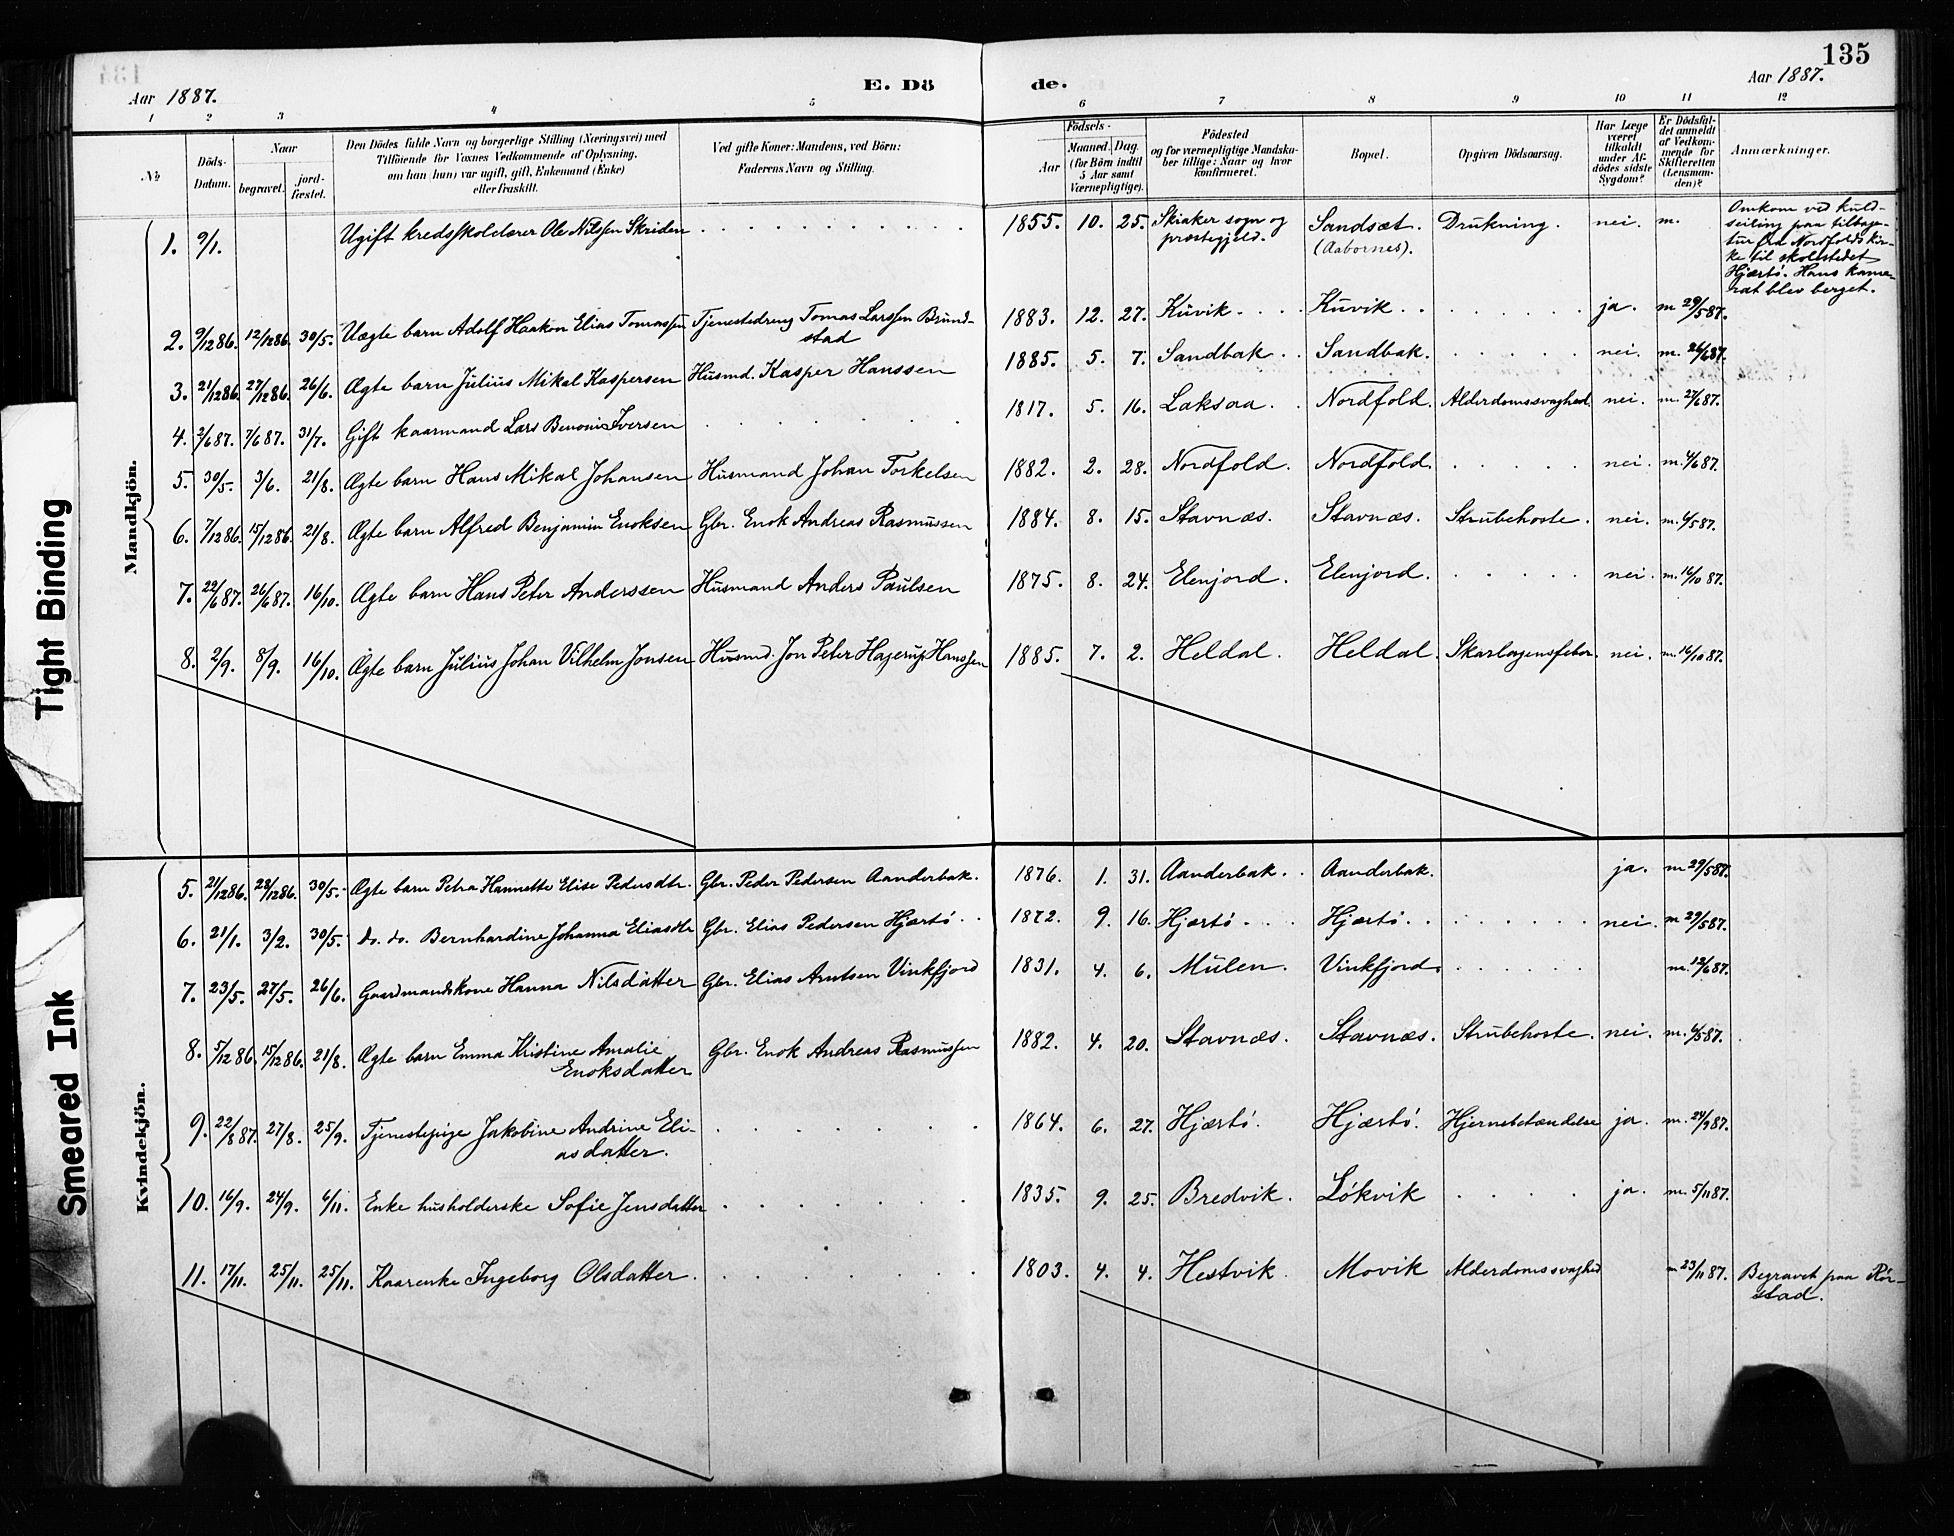 135
E. Döde.
Aar 1887.
Aar 1887.
1 2 3 4 5 6 7 8 9 10 11 12
№ Döds-Datum. Naar begravet. jord-fæstet. Den Dödes fulde Navn og borgerlige Stilling (Næringsvei) med Tilföiende for Voxnes Vedkommende af Oplysning, om han (hun) var ugift, gift, Enkemand (Enke) eller fraskilt. Ved gifte Koner: Mandens, ved Börn: Faderens Navn og Stilling. Födsels- Aar Maaned. Dag. (for Börn indtil 5 Aar samt Værnepligtige). Födested og for værnepligtige Mandskaber tillige: Naar og hvor konfirmeret. Bopæl. Opgiven Dödsaarsag. Har Læge været tilkaldt under Afdödes sidste Sygdom? Er Dödsfaldet anmeldt af Vedkommende for Skifteretten (Lensmanden)? Anmærkninger.
Mandkjön.
1. 9/1. Ugift kredsskolelærer Ole Nilssen Skriden 1855. 10. 25. Skiaker sogn og præstegjeld. Sandsæt. (Aabornes). Drukning. nei. m. Omkom ved kuldseiling paa tilbagetur fra Nordfolds kirke til skolestedet Hjærtö. Hans kamerat blev berget.
2. 9/12 86. 12/12 86. 30/5. Uægte barn Adolf Haakon Elias Tomassen Tjenestedreng Tomas Larssen Brundstad 1883. 12. 27. Kuvik. Kuvik. ja. m. 29/5 87.
3. 21/12 86. 27/12 86. 26/6. Ægte barn Julius Mikal Kaspersen Husmd. Kasper Hanssen 1885. 5. 7. Sandbak. Sandbak. nei. m. 26/6 87.
4. 2/6 87. 7/6 87. 31/7. Gift kaarmand Lars Benoni Iversen 1817. 5. 16. Laksaa. Nordfold. Alderdomssvaghed. nei. m. 27/6 87.
5. 30/5. 3/6. 21/8. Ægte barn Hans Mikal Johansen Husmand Johan Torkelsen 1882. 2. 28. Nordfold. Nordfold. nei. m. 4/6 87.
6. 7/12 86. 15/12 86. 21/8. Ægte barn Alfred Benjamin Enoksen Gbr. Enok Andreas Rasmussen 1884. 8. 15. Stavnæs. Stavnæs. Strubehoste. nei. m. 6/5 87.
7. 22/6 87. 26/6 87. 16/10. Ægte barn Hans Peter Anderssen Husmand Anders Paulsen 1875. 8. 24. Elenjord. Elenjord. nei. m. 16/10 87.
8. 2/9. 8/9. 16/10. Ægte barn Julius Johan Vilhelm Jonsen Husmd. Jon Peter Hagerup Hanssen 1885. 7. 2. Heldal. Heldal. Skarlagensfeber. nei. m. 16/10 87.
Kvindekjön.
5. 21/12 86. 28/12 86. 30/5. Ægte barn Petra Hannette Elise Pedersdtr. Gbr. Peder Pedersen Aanderbak. 1876. 1. 31. Aanderbak. Aanderbak. ja. m. 29/5 87.
6. 21/1. 3/2. 30/5. do. do. Bernhardine Johanna Eliasdtr Gbr. Elias Pedersen Hjærtö. 1872. 9. 16. Hjærtö. Hjærtö. nei. m. 29/5 87.
7. 23/5. 27/5. 26/6. Gaardmandskone Hanna Nilsdatter Gbr. Elias Arntsen Vinkfjord 1831. 4. 6. Mulen. Vinkfjord. m. 12/6 87.
8. 5/12 86. 15/12 86. 21/8. Ægte barn Emma Kristine Amalie Enoksdatter Gbr. Enok Andreas Rasmussen 1882. 4. 20. Stavnæs. Stavnæs. Strubehoste. nei. m. 6/5 87.
9. 22/8 87. 27/8. 25/9. Tjenestepige Jakobine Andrine Eliasdatter. 1864. 6. 27. Hjærtö. Hjærtö. Hjernebetændelse ja. m. 24/9 87.
10. 16/9. 24/9. 6/11. Enke husholderske Sofie Jensdatter 1835. 9. 25. Bredvik. Lökvik ja. m. 5/11 87.
11. 17/11. 25/11. 25/11. Kaarenke Ingeborg Olsdatter. 1803. 4. 4. Hestvik. Movik Alderdomssvaghed m. 23/11 87. Begravet paa Rörstad.
Tight Binding
Smeared Ink